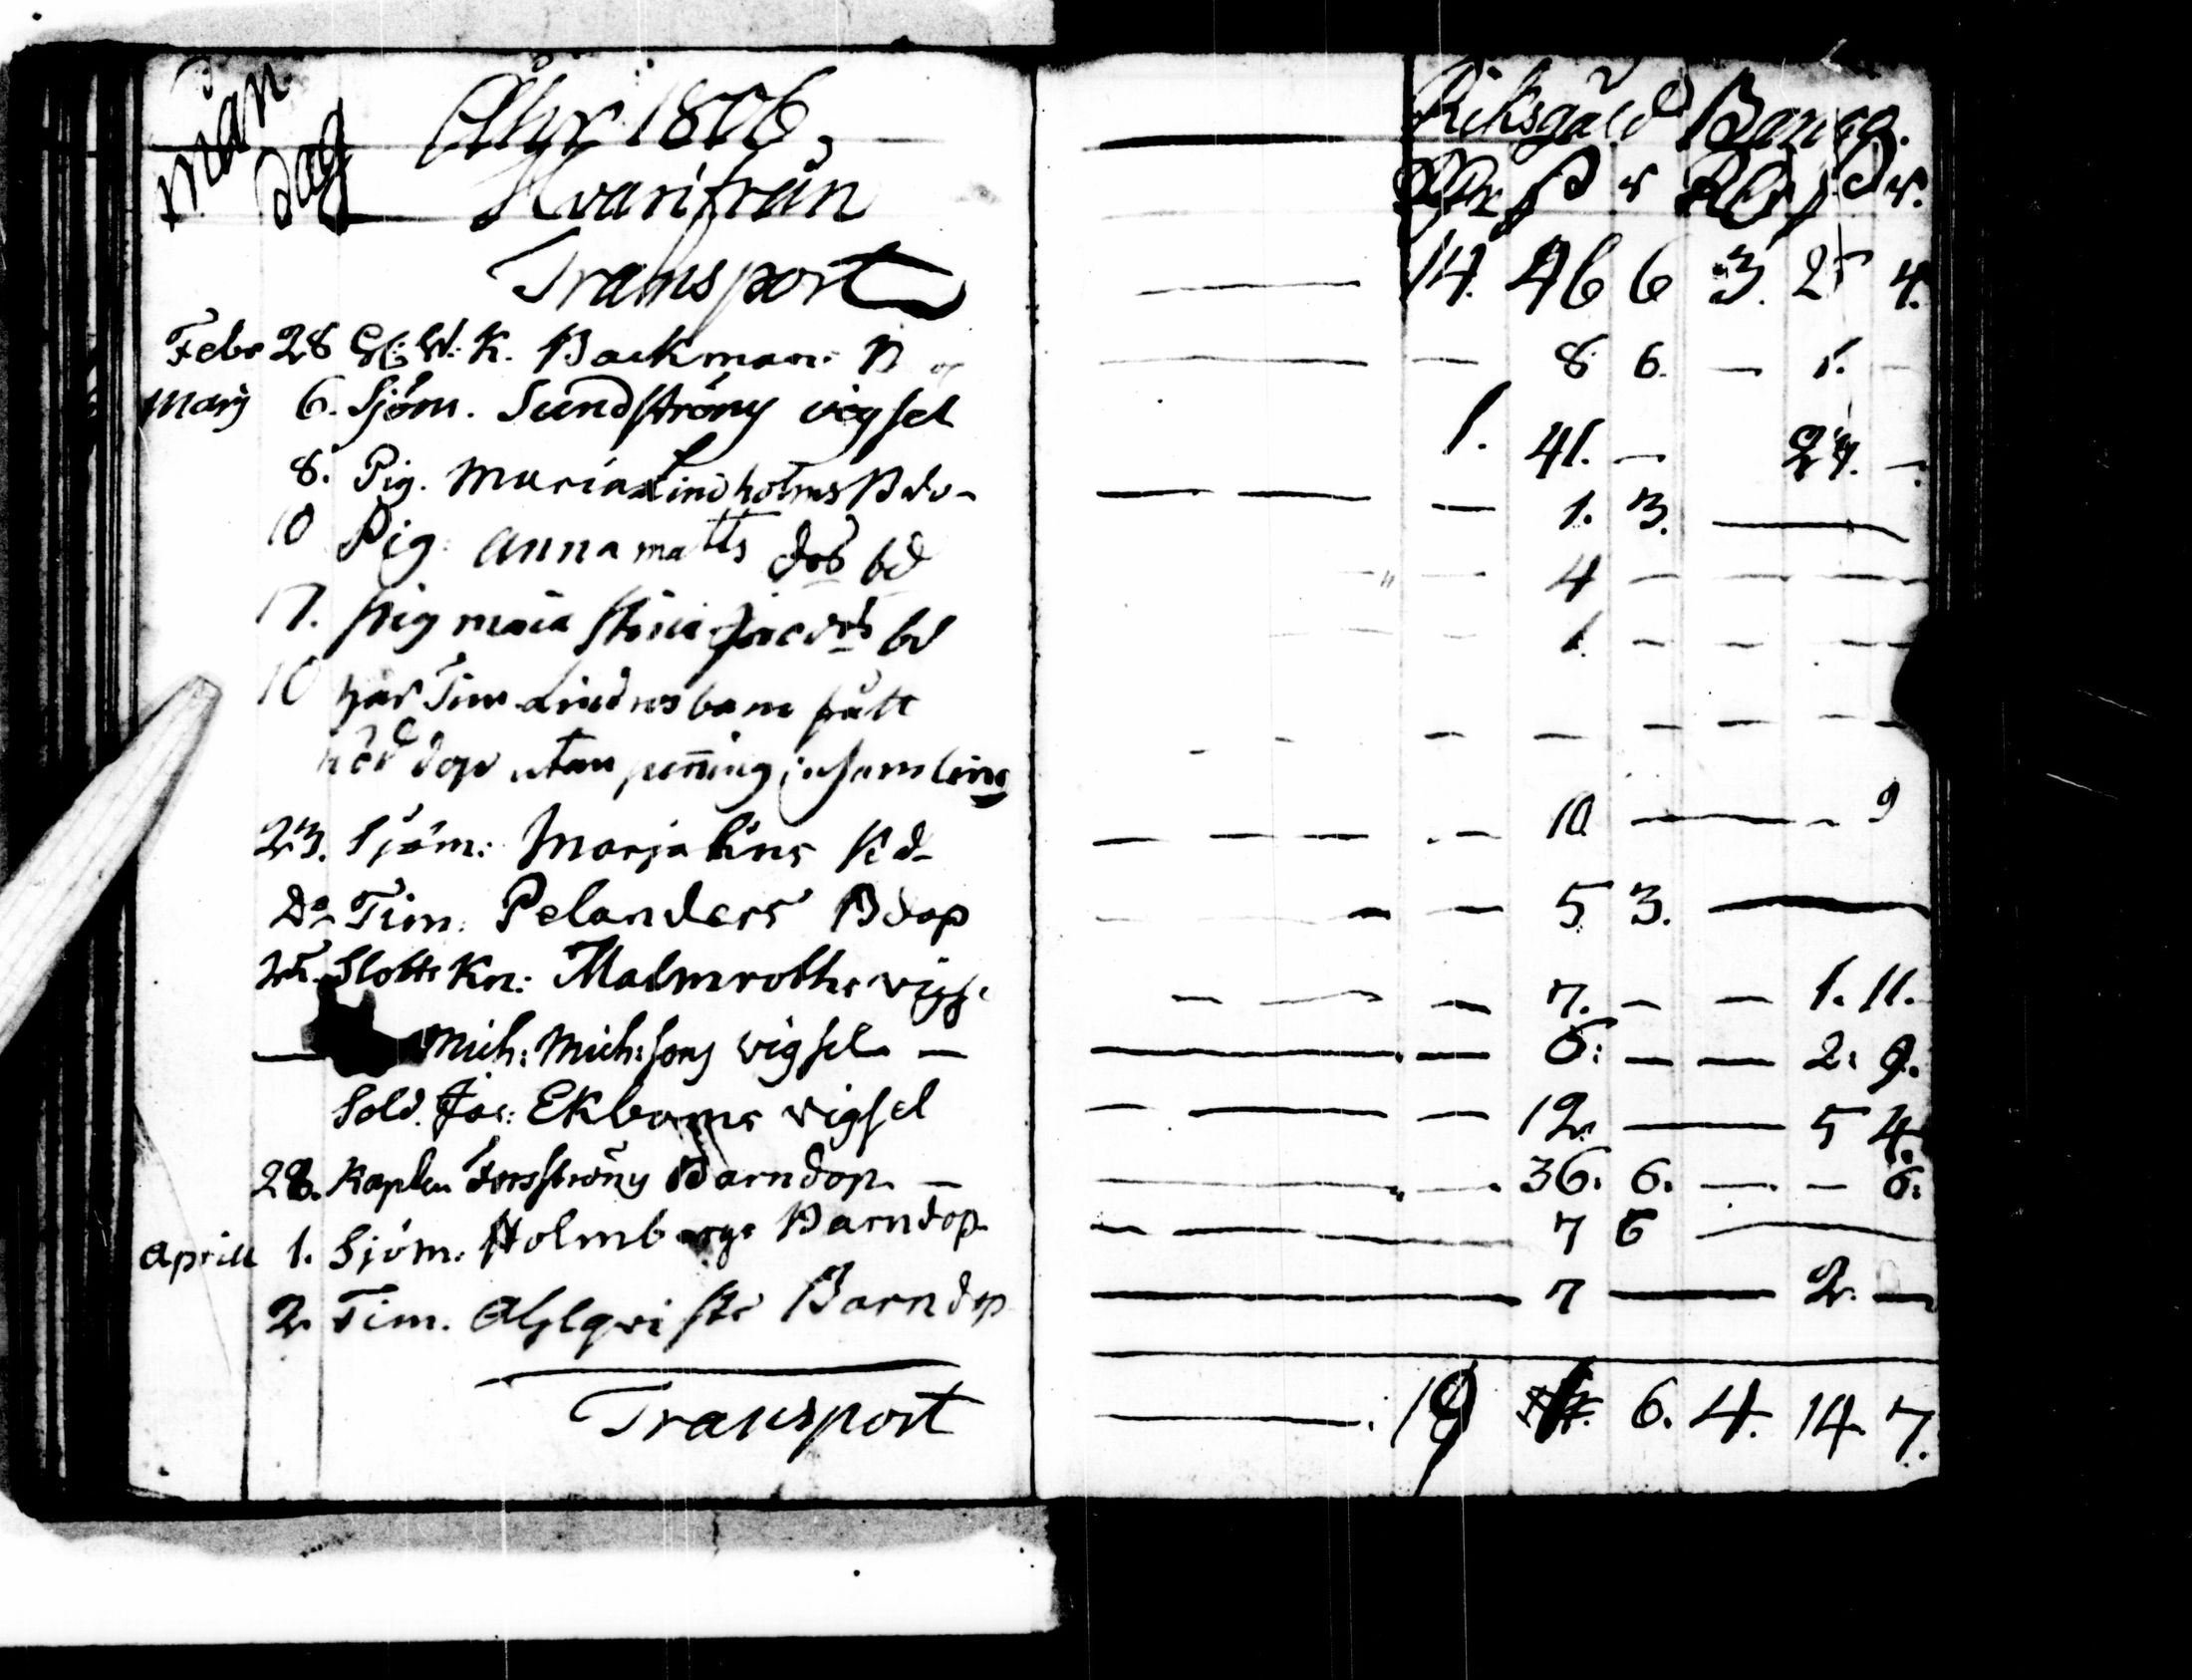 mån dag Åhr 1806, Riksgäld Banco.
Hvarifrån Rdr ß r Rd ß r.
Transport 14. 46 6 3. 25 4.
Febr 28 K. Backmans B — — 8 6. — 1. —
Martj 6. Sjöm. Sundströms vigsel 1. 41. — 24. —
8. Pig. Maria Lindholms Bdo — — — 1. 3. —
10 Pig: Anna matts dos bd — 4 — — — —
17. pig maia Stina Jacdots bd — — 1 — — — —
10 har Tim barn fått
nöd dop utan peñing insamling — — — — — — —
23. Sjöm: Marjalins Bd — — — — 10 — 9
Do Tim: Pelanders Bdop — — — 5 3. —
25. Slotts Kn: Malmroths vigs — — — 7. — — 1. 11.
— Mich: Mich:sons vigsel — — — 6: — — 2: 9.
Sold. Jac: Ekboms vigsel — — — 12. — 5 4.
28. Kapten Forsströms Barndop — — — 36. 6. — — 6:
Aprill 1. Sjöm: Holmbergs Barndop — — 7 6 —
2. Tim. Ahlqvists Barndop — 7 — 2. —
Transport — 19 6. 4. 14. 7.